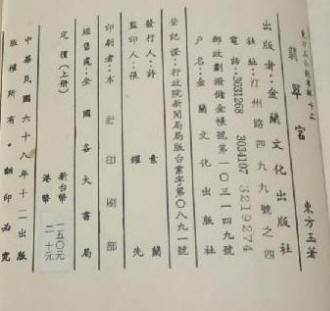 翡翠宮
東方玉著
出版者：金蘭文化出版社
社址：汀州路四九九號之四
電話：3031268 3034107 3219274
郵政劃撥儲金帳號第一〇三一四九號
戶名：金蘭文化出版社
登記證：行政院新聞局局版台業字第〇八九一號
發行人：許素蘭
監印人：張耀先
印刷者：本社印刷部
經售處：全國各大書局
定價(上冊)
新台幣一五〇元
港幣二十元
中華民國六十八年十二出版
版權所有·翻印必究